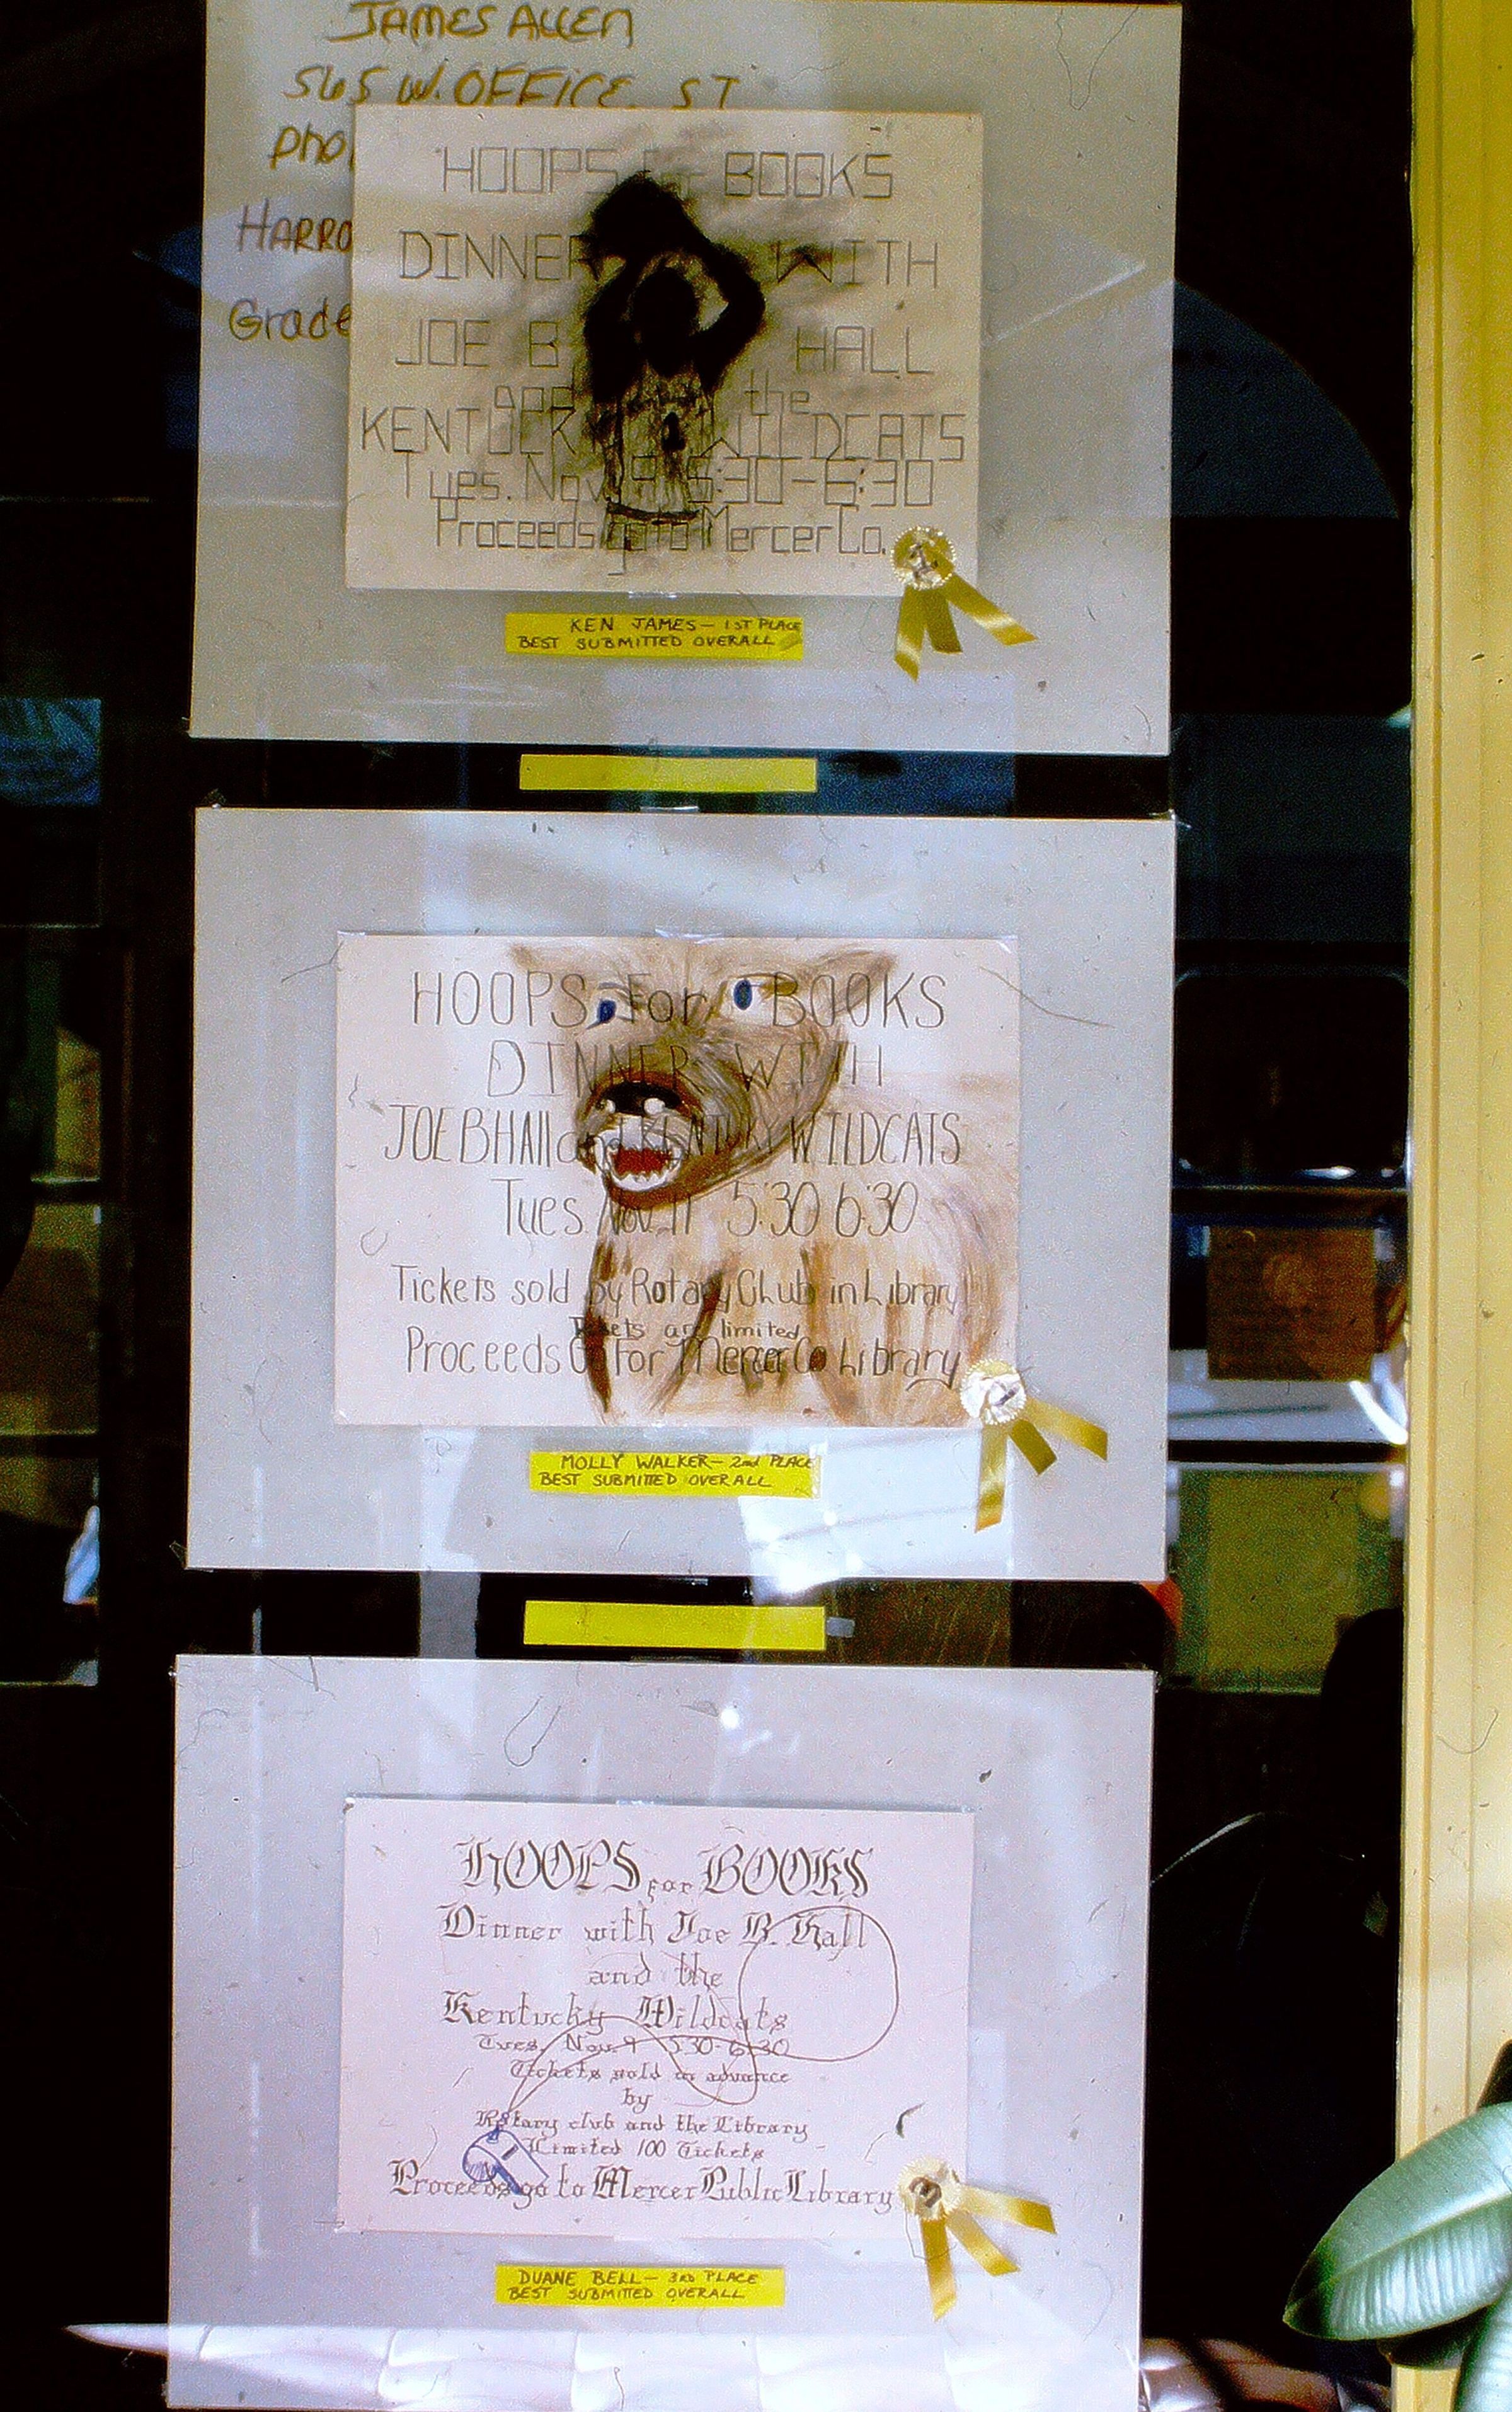 JAMES ALLEN
565 W. OFFICE ST
Pho
HARRO
Grade
HOOPS BOOKS
DINNER WITH
JOE B HALL
and the
KENTUCKY WILDCATS
Tues. Nov. 9 5:30-6:30
Proceeds go to Mercer Co.
1
KEN JAMES - 1ST PLACE
BEST SUBMITTED OVERALL
HOOPS for BOOKS
DINNER WITH
JOE B HAll and KENTUCKY WILDCATS
Tues. Nov. 11 5:30 6:30
Tickets sold by Rotary Club in Library
Tickets are limited
Proceeds Go For Mercer Co Library
MOLLY WALKER - 2nd PLACE
BEST SUBMITTED OVERALL
HOOPS for BOOKS
Dinner with Joe B. Hall
and the
Kentucky Wildcats
Tues. Nov. 9 5:30-6:30
Tickets sold in advance
by
Rotary club and the Library
Limited 100 Tickets
Proceeds go to Mercer Public Library
3
DUANE BELL - 3RD PLACE
BEST SUBMITTED OVERALL